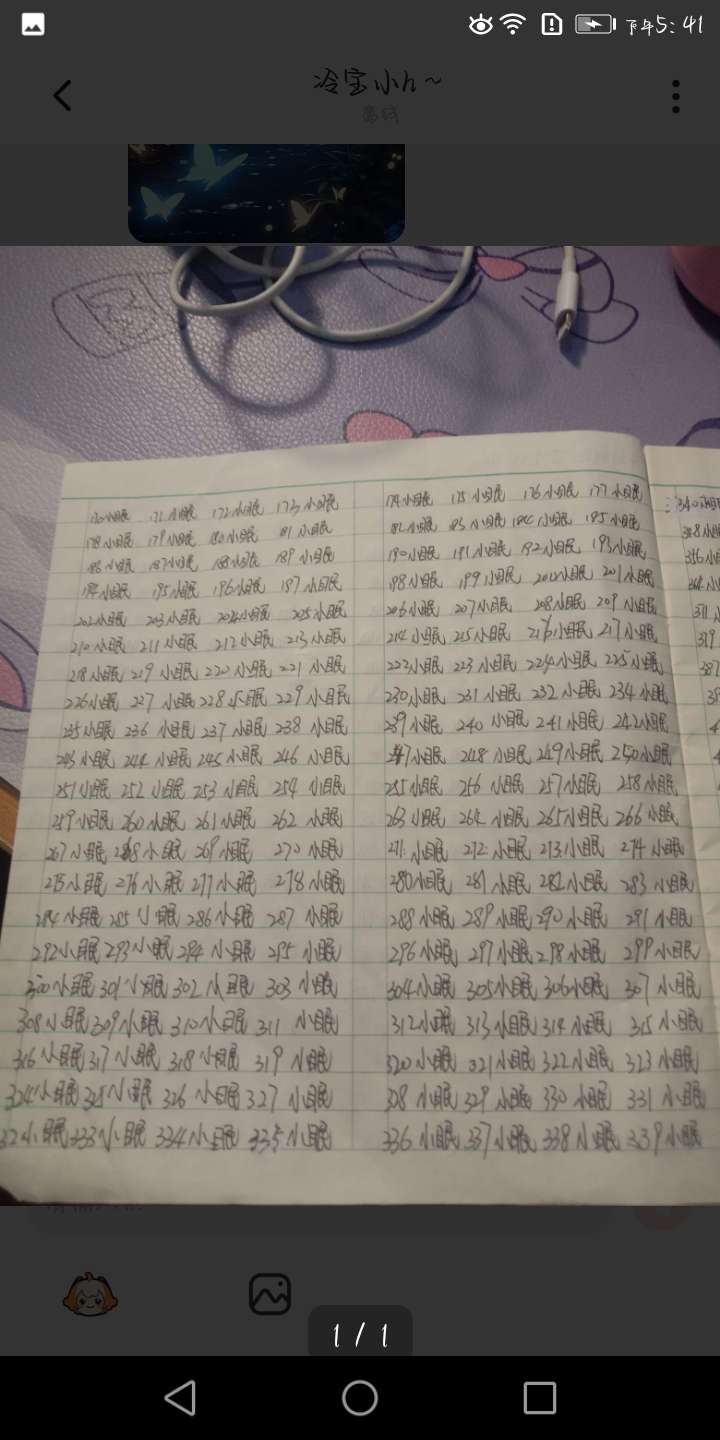 下午5:41
冷宝小h~
离线
170小眠 171小眠 172小眠 173小眠 174小眠 175小眠 176小眠 177小眠
178小眠 179小眠 180小眠 181小眠 182小眠 183小眠 184小眠 185小眠
186小眠 187小眠 188小眠 189小眠 190小眠 191小眠 192小眠 193小眠
194小眠 195小眠 196小眠 197小眠 198小眠 199小眠 200小眠 201小眠
202小眠 203小眠 204小眠 205小眠 206小眠 207小眠 208小眠 209小眠
210小眠 211小眠 212小眠 213小眠 214小眠 215小眠 216小眠 217小眠
218小眠 219小眠 220小眠 221小眠 222小眠 223小眠 224小眠 225小眠
226小眠 227小眠 228小眠 229小眠 230小眠 231小眠 232小眠 234小眠
235小眠 236小眠 237小眠 238小眠 239小眠 240小眠 241小眠 242小眠
243小眠 244小眠 245小眠 246小眠 247小眠 248小眠 249小眠 250小眠
251小眠 252小眠 253小眠 254小眠 255小眠 256小眠 257小眠 258小眠
259小眠 260小眠 261小眠 262小眠 263小眠 264小眠 265小眠 266小眠
267小眠 268小眠 269小眠 270小眠 271小眠 272小眠 273小眠 274小眠
275小眠 276小眠 277小眠 278小眠 280小眠 281小眠 282小眠 283小眠
284小眠 285小眠 286小眠 287小眠 288小眠 289小眠 290小眠 291小眠
292小眠 293小眠 294小眠 295小眠 296小眠 297小眠 298小眠 299小眠
300小眠 301小眠 302小眠 303小眠 304小眠 305小眠 306小眠 307小眠
308小眠 309小眠 310小眠 311小眠 312小眠 313小眠 314小眠 315小眠
316小眠 317小眠 318小眠 319小眠 320小眠 321小眠 322小眠 323小眠
324小眠 325小眠 326小眠 327小眠 328小眠 329小眠 330小眠 331小眠
32小眠 333小眠 334小眠 335小眠 336小眠 337小眠 338小眠 339小眠
1 / 1